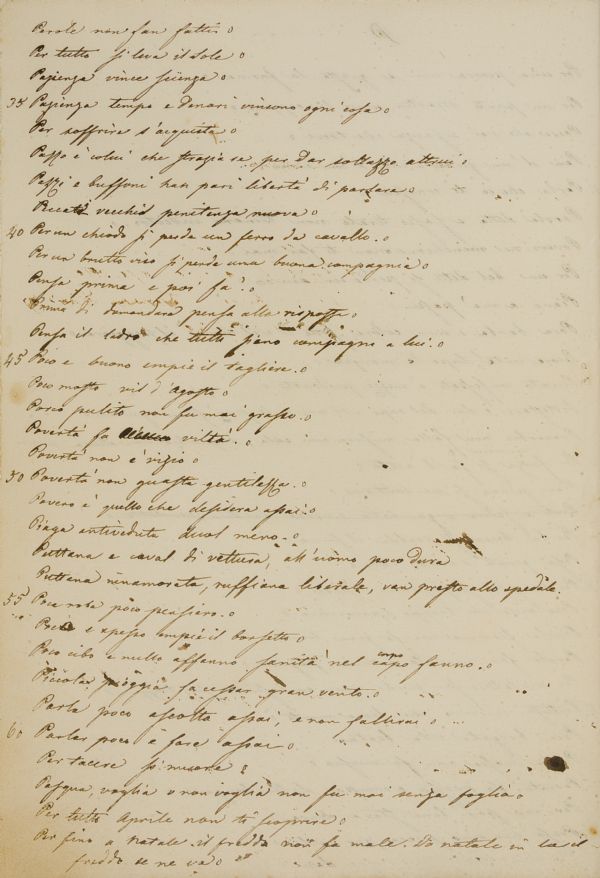 Parole non fan fatti
Per tutto si leva il Sole
Pazienza vince scienza
35 Pazienza tempo e denari vincono ogni cosa
Per soffrire s'acquista
Pazzo è colui che strazia se per dar sollazzo altrui
Pazzi e buffoni han pari libertà di parlara
Peccato vecchio penitenza nuova
40 Per un chiodo si perde un ferro da cavallo.
Per un brutto viso si perde una buona compagnia
Pensa prima e poi fa'.
Prima di domandara pensa alla risposta
Pensa il ladro che tutti siano compagni a lui.
45 Poco e buono empie il tagliere.
Poco mosto vil d'Agosto
Porco pulito non fu mai grasso.
Povertà fa viltà.
Povertà non è vizio
50 Povertà non guasta gentilezza.
Povero è quello che desidera assai.
Piaga antiveduta duol meno.
Puttana e caval di vettura, all'uomo poco dura
Puttana innamorata, ruffiana liberale, van presto allo spedale.
55 Poca roba poco pensiero.
Poco e spesso empie il borsetto
Poco cibo e nullo affanno sanità nel capo fanno.
corpo
Piccola pioggia fa cessar gran vento.
Parla poco ascolta assai, e non fallirai
60 Parlar poco è fare assai
Per tacere si muore
Pasqua, voglia o non voglia non fu mai senza foglia
Per tutto Aprile non ti scoprire
Per fino a Natale il freddo non fa male. Da natale in la il
freddo se ne va